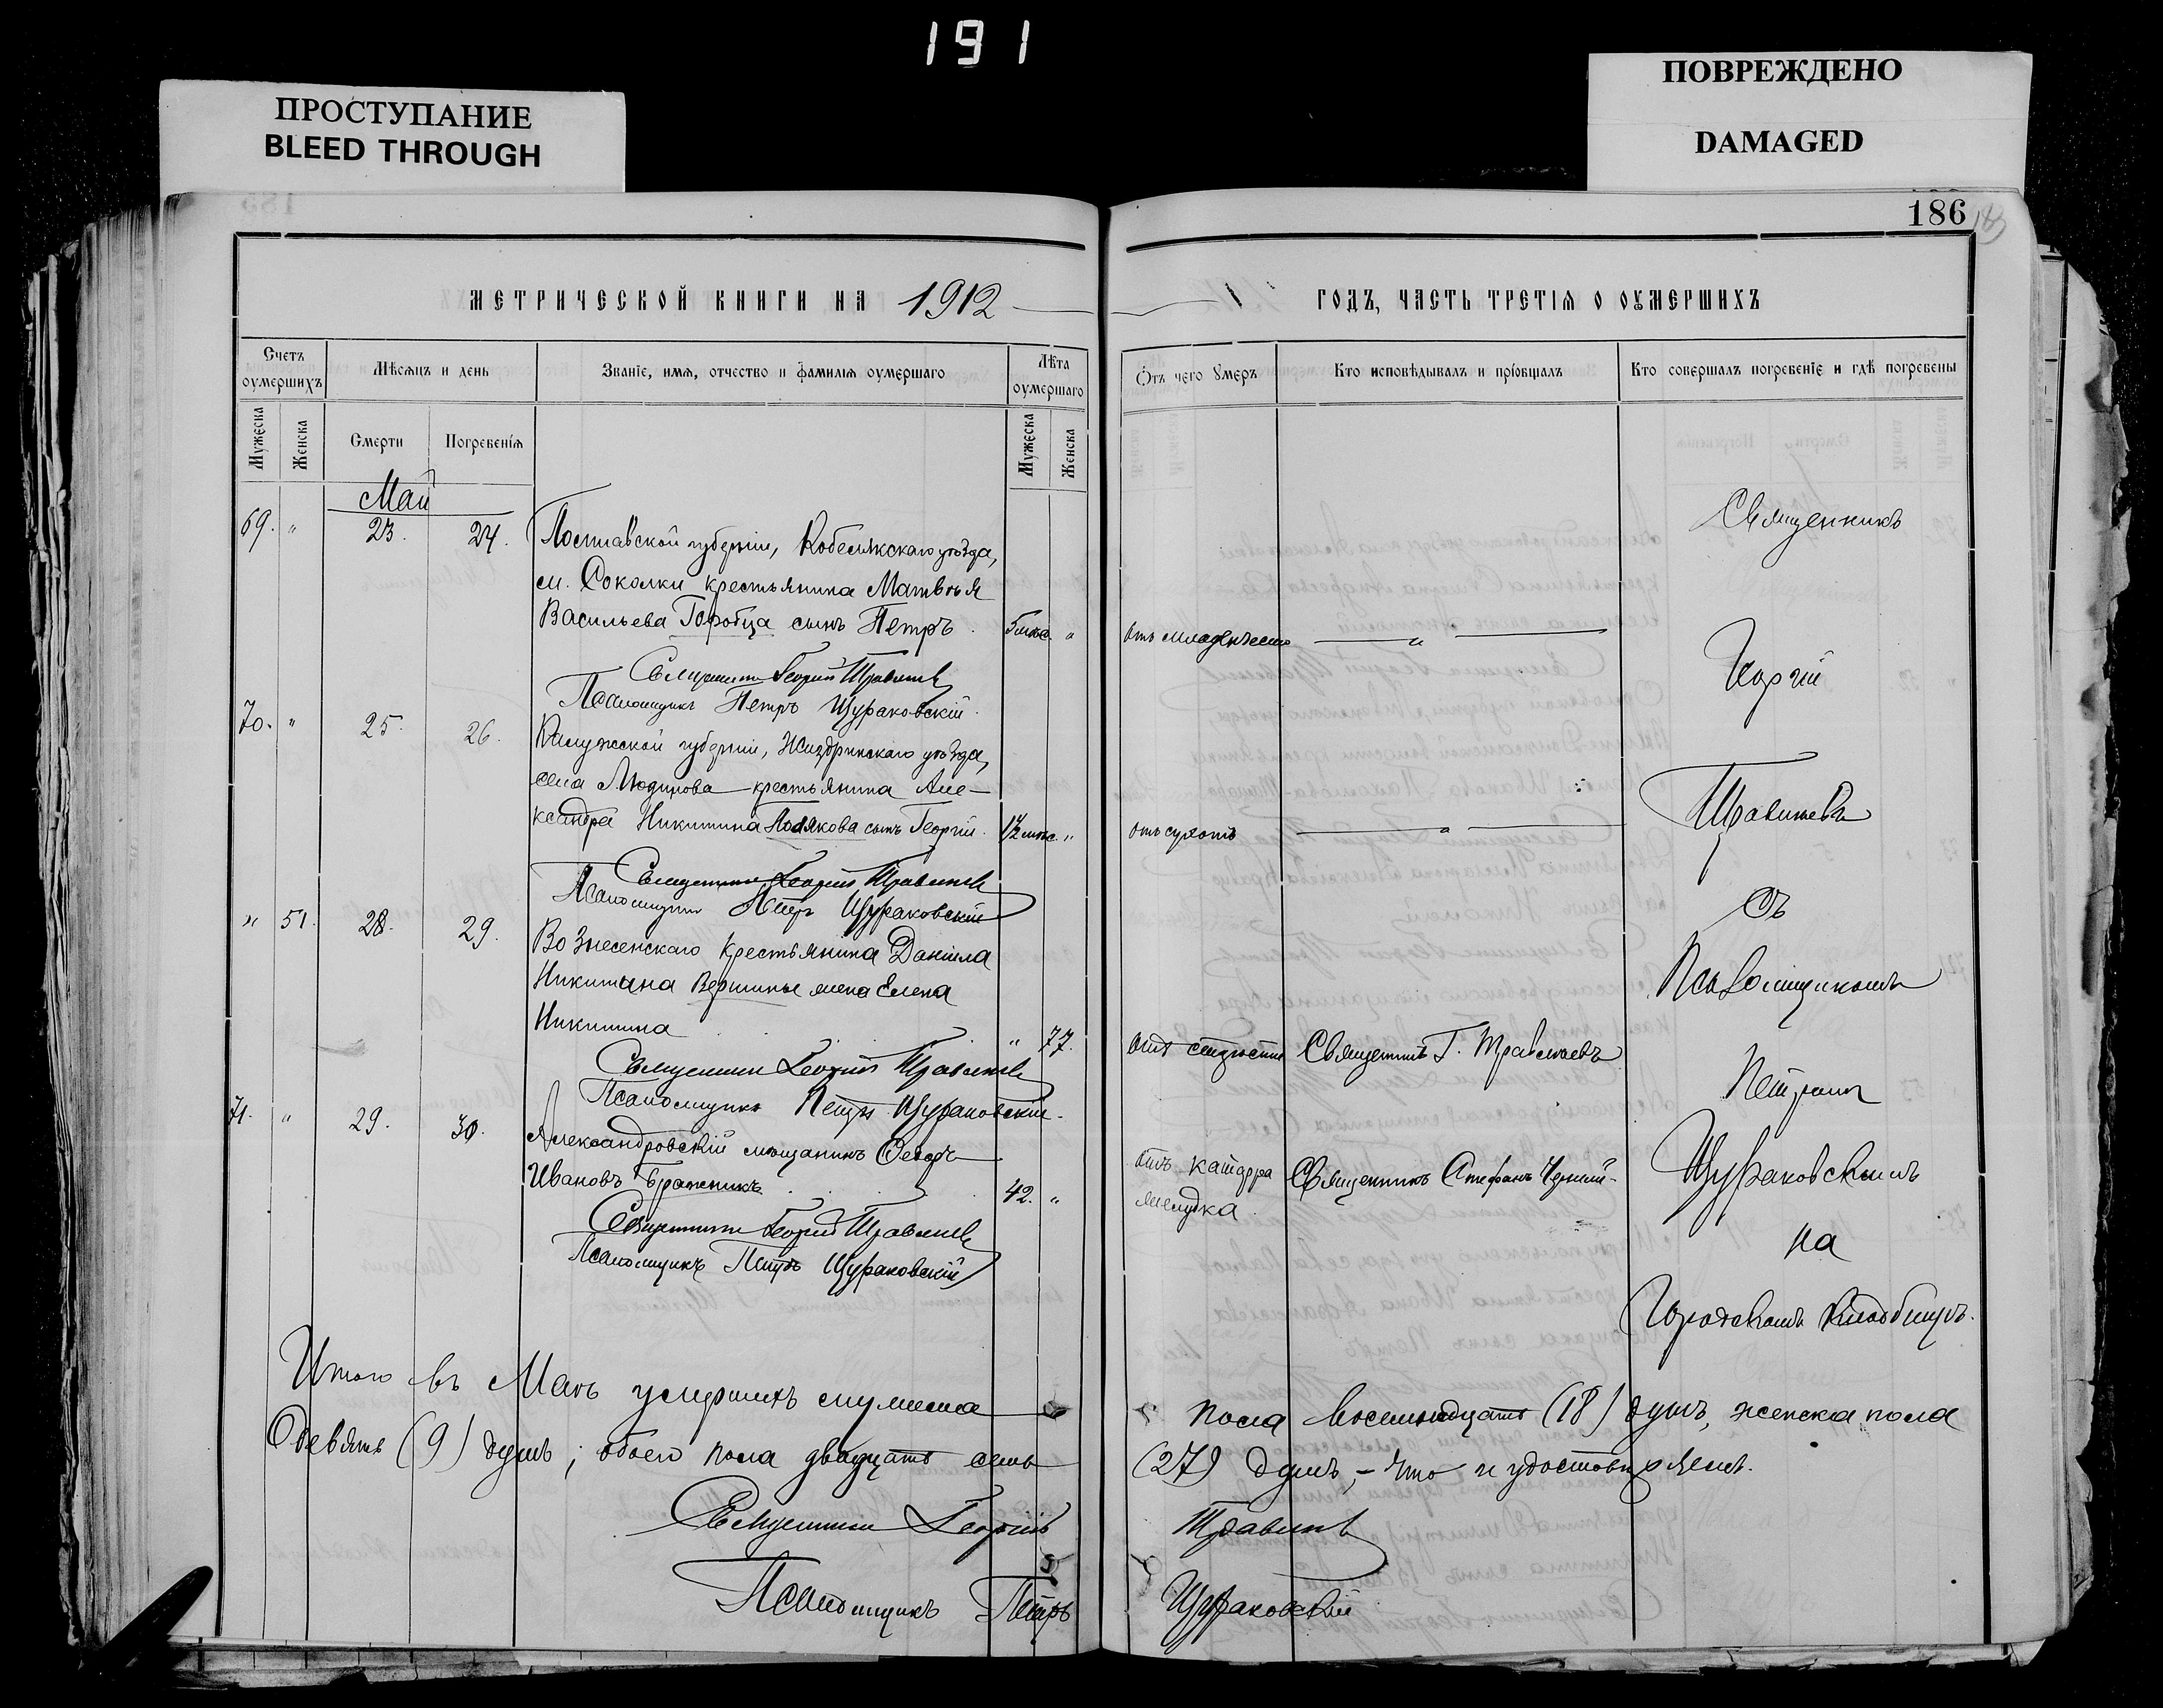 191
ПРОСТУПАНИЕ
BLEED THROUGH
ПОВРЕЖДЕНО
DAMAGED
186
МЕТРИЧЕСКОЙ КНИГИ НА 1912
ГОДЪ, ЧАСТЬ ТРЕТІЯ О ОУМЕРШИХЪ
Счетъ оумершихъ
Мѣсяцъ и день
Званіе, имя, отчество и фамилія оумершаго
Лѣта оумершаго
Отъ чего умеръ
Кто исповѣдывалъ и пріобщалъ
Кто совершалъ погребеніе и гдѣ погребены
Мужеска
Женска
Смерти
Погребенія
Мужеска
Женска
Май
69. " 23. 24. Полтавской губерніи, Кобелякскаго уѣзда,
м. Соколки крестьянина Матвѣя
Васильева Горобца сынъ Петръ. 5 мѣс. "
отъ младенческ
Священникъ Георгій Травинъ
Псаломщикъ Петръ Щураковскій.
70. " 25. 26. Калужской губерніи, Жиздринскаго уѣзда,
села Людинова крестьянина Але-
ксандра Никитина Полякова сынъ Георгій. 1½ мѣс. "
отъ сухотъ
Священникъ Георгій Травинъ
Псаломщикъ Петръ Щураковскій
" 51. 28. 29. Вознесенскаго крестьянина Даніила
Никитина Вершины жена Елена
Никитина " 77.
отъ старости Священникъ Г. Травиньевъ
Священникъ Георгій Травинъ
Псаломщикъ Петръ Щураковскій.
71. " 29. 30. Александровскій мѣщанинъ Ѳедоръ
Ивановъ Бражникъ. 42. "
отъ катарра Священникъ Стефанъ Черный.
желудка
Священникъ Георгій Травинъ
Псаломщикъ Петръ Щураковскій
Священникъ
Георгій
съ
Псаломщикомъ
Петромъ
Щураковскимъ
на
Городскомъ кладбищѣ.
Итого въ Маѣ умершихъ мужеска пола восемнадцать (18) душъ, женска пола
девять (9) душъ; обоего пола двадцать семь (27) душъ, – что и удостовѣряемъ.
Священникъ Георгій Травинъ
Псаломщикъ Петръ Щураковскій